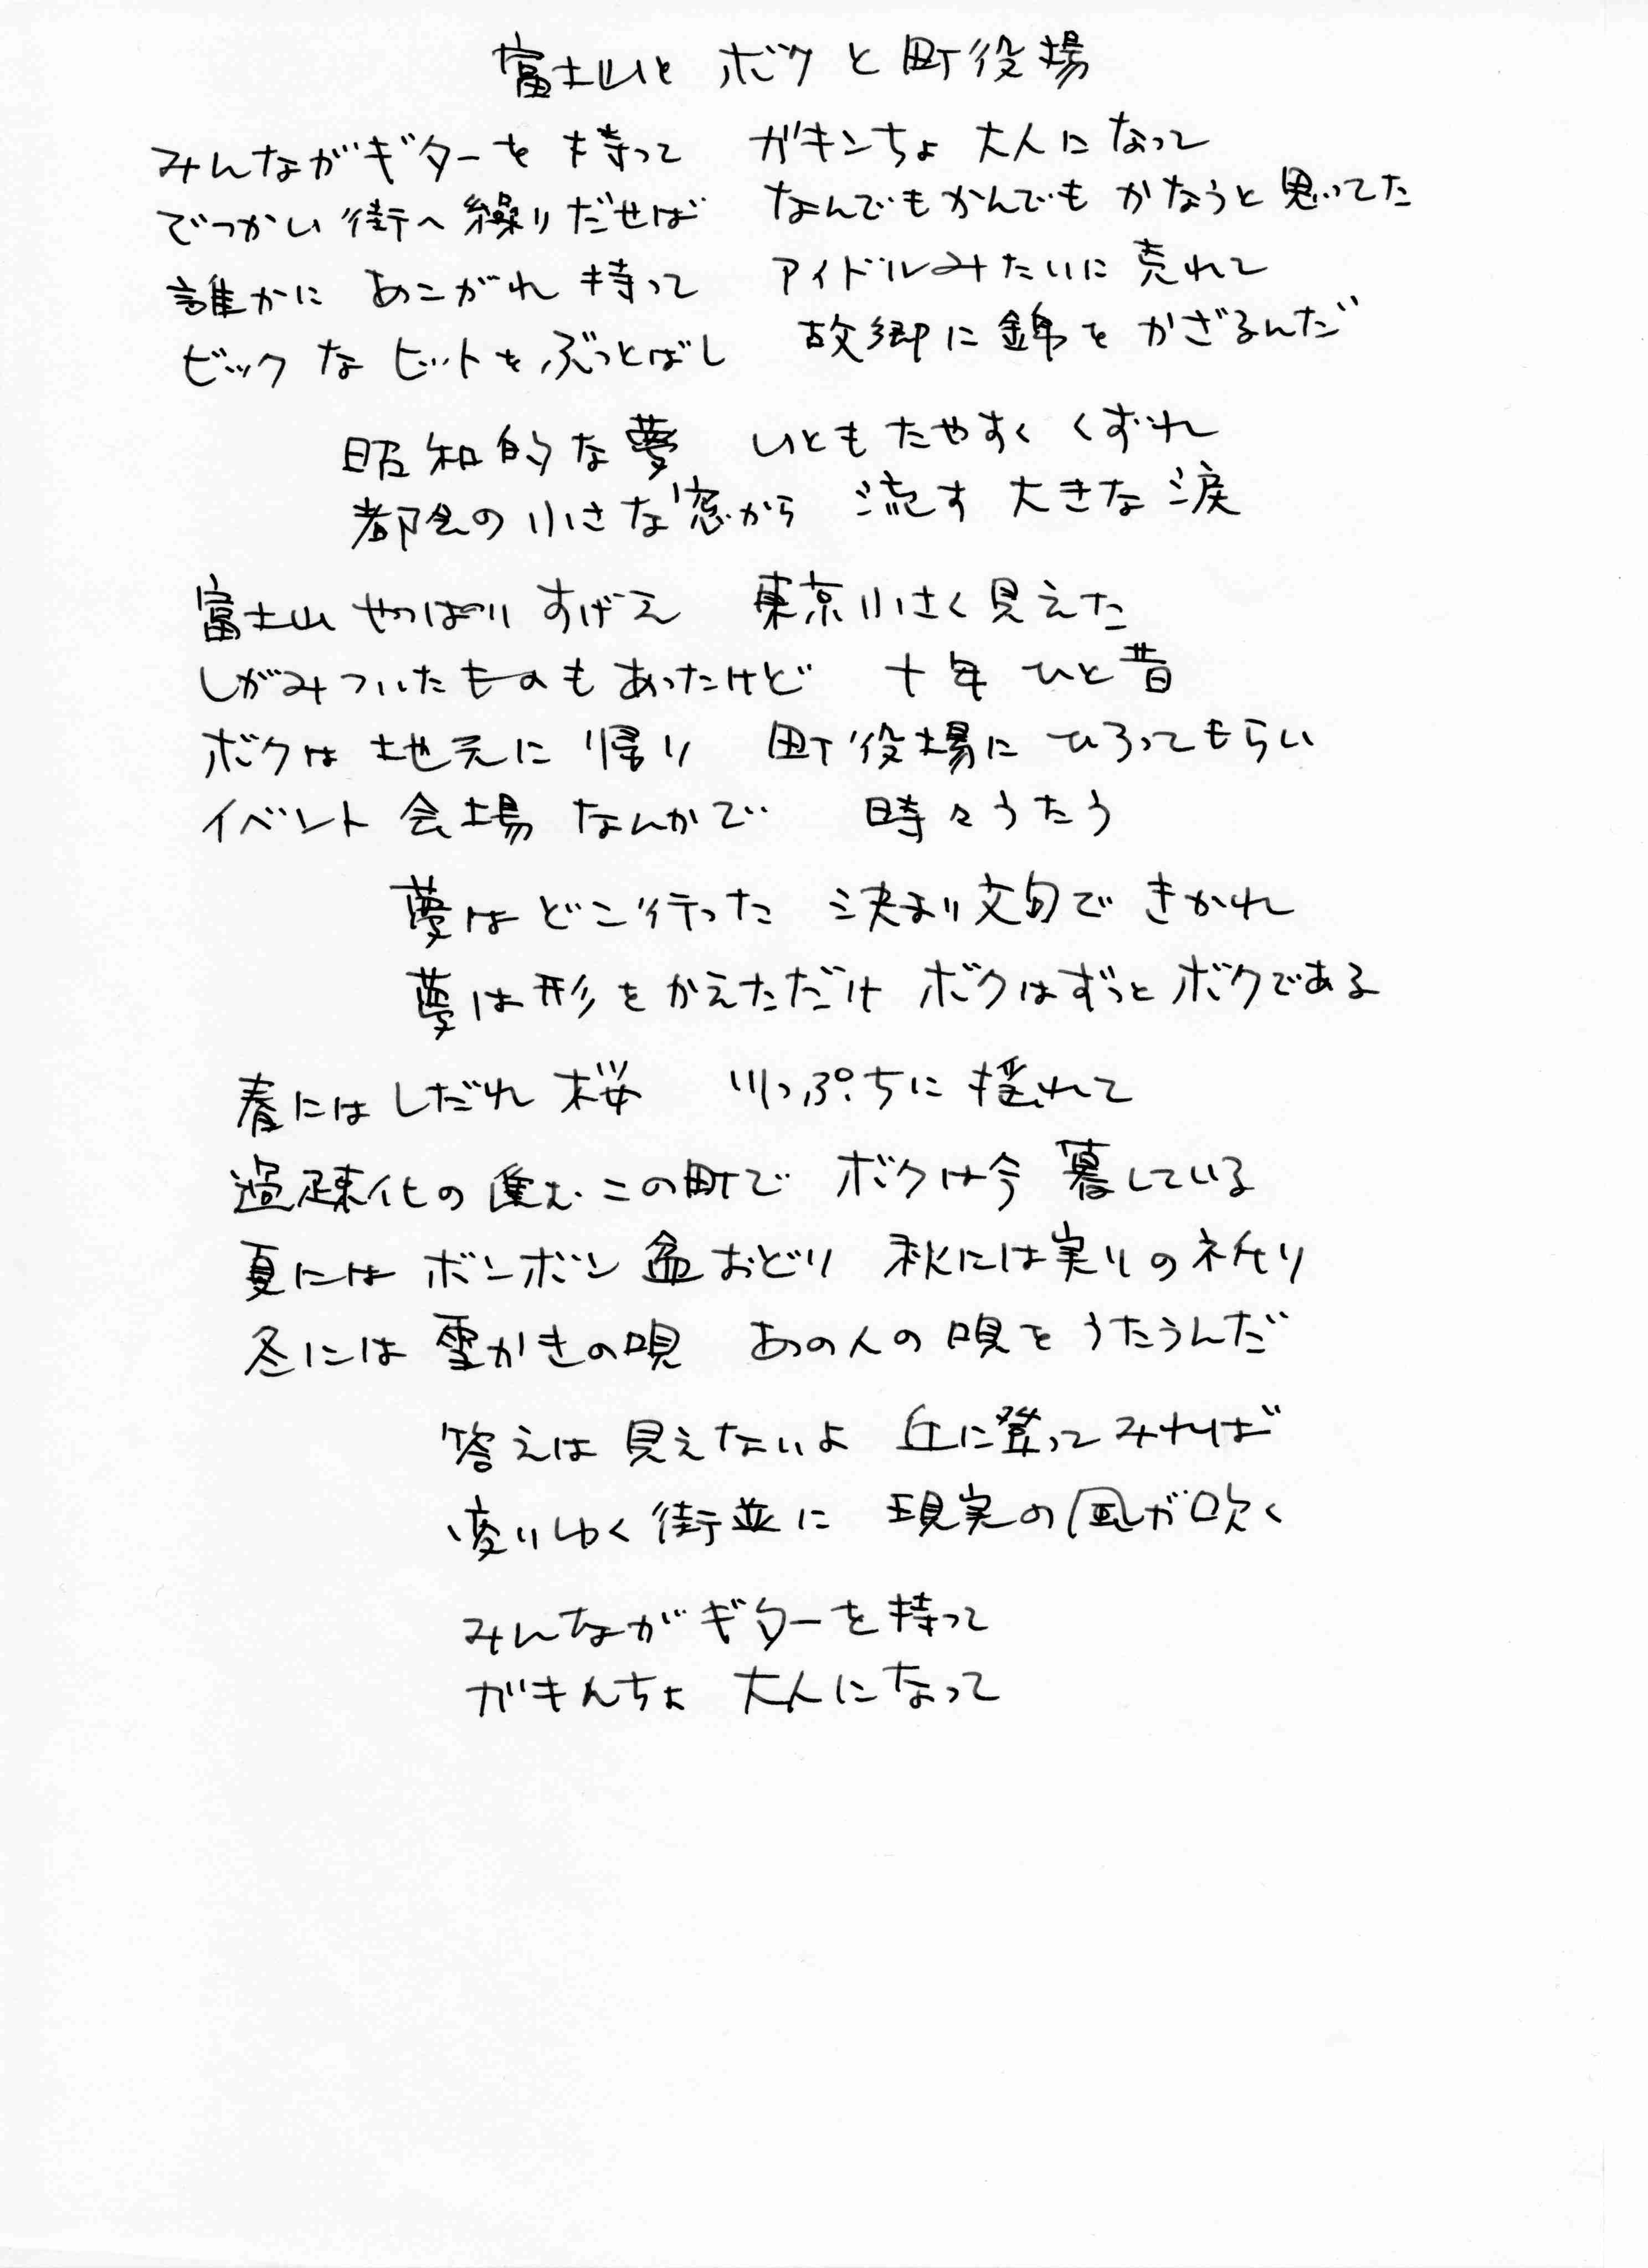 富士山と ボク と 町役場
みんながギターを 持って ガキンちょ 大人に なって
でっかい 街へ 繰りだせば なんでもかんでも かなうと 思ってた
誰かに あこがれ 持って アイドルみたいに 売れて
ビックな ヒットを ぶっとばし 故郷に 錦を かざるんだ
昭和的な夢 いとも たやすく くずれ
都会の 小さな窓から 流す 大きな 涙
富士山 やっぱり すげえ 東京 小さく 見えた
しがみついたものも あったけど 十年 ひと昔
ボクは 地元に 帰り 町役場に ひろってもらい
イベント 会場 なんかで 時々うたう
夢は どこ行った 決まり文句で きかれ
夢は形を かえただけ ボクはずっと ボクである
春には しだれ 桜 川っぷちに 揺れて
過疎化の 進む この町で ボクは今 暮している
夏には ボンボン 盆おどり 秋には 実りの 祈り
冬には 雪かきの唄 あの人の 唄を うたうんだ
答えは 見えないよ 丘に登って みれば
変りゆく 街並に 現実の 風が吹く
みんながギターを持って
がきんちょ 大人になって